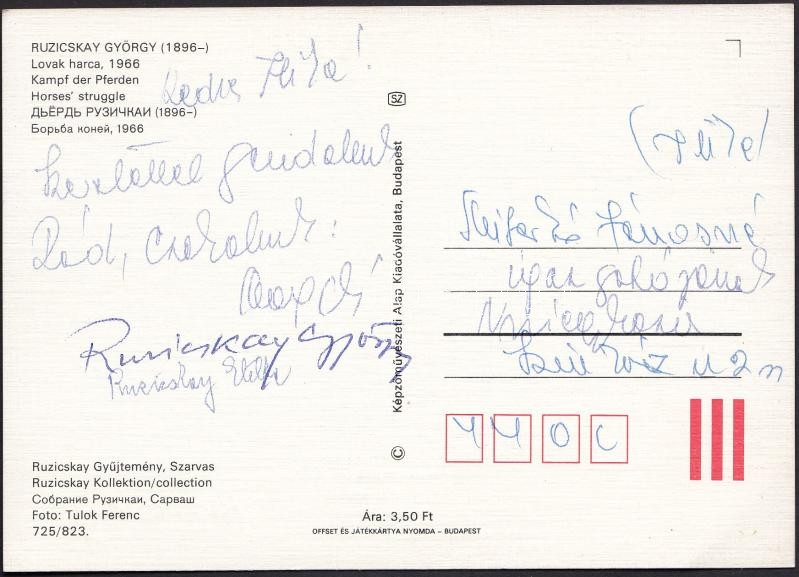 RUZICSKAY GYÖRGY (1896–)
Lovak harca, 1966
Kampf der Pferden
Horses' struggle
ДЬЁРДЬ РУЗИЧКАИ (1896–)
Борьба коней, 1966
Kedves
Szeretettel gondolunk
Rád, csókolunk:
Ruzicskay György
Ruzicskay
SZ
© Képzőművészeti Alap Kiadóvállalata, Budapest
Jánosné
Nyíregyháza
440
Ruzicskay Gyűjtemény, Szarvas
Ruzicskay Kollektion/collection
Собрание Рузичкаи, Сарваш
Foto: Tulok Ferenc
725/823.
Ára: 3,50 Ft
OFFSET ÉS JÁTÉKKÁRTYA NYOMDA – BUDAPEST